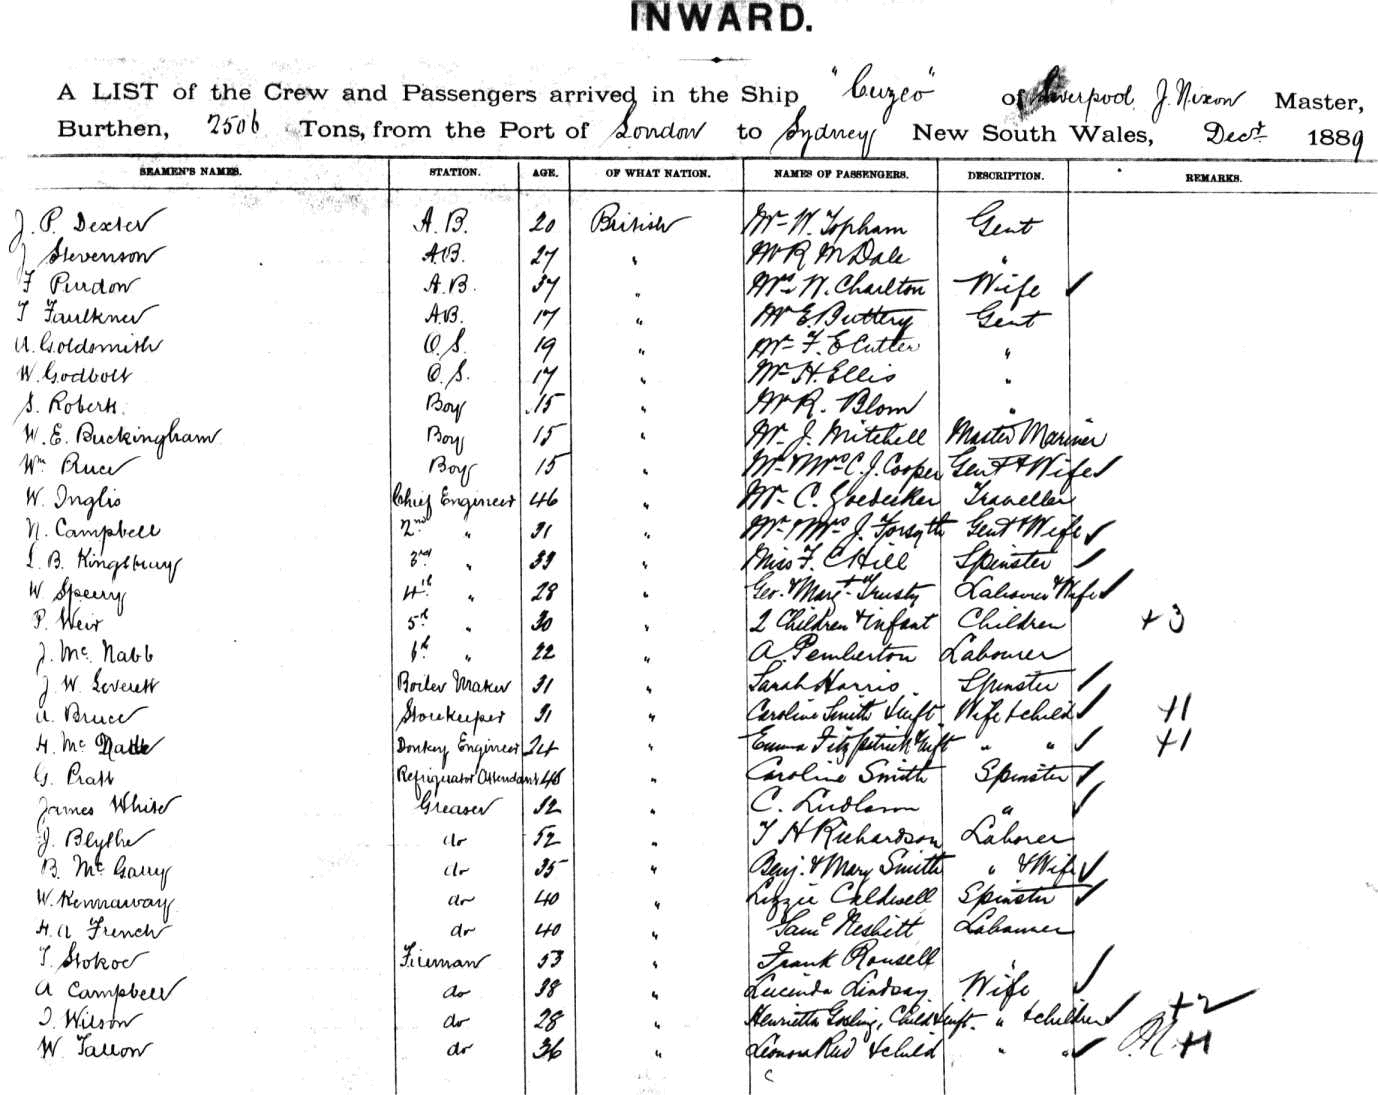 INWARD.
A LIST of the Crew and Passengers arrived in the Ship "Cuzco" of Liverpool, J. Nixon Master,
Burthen, 2506 Tons, from the Port of London to Sydney New South Wales, Decr. 1889
SEAMEN'S NAMES. STATION. AGE. OF WHAT NATION. NAMES OF PASSENGERS. DESCRIPTION. REMARKS.
J. P. Dexter A.B. 20 British Mr W. Topham Gent
J Stevenson A.B. 27 " Mr R McDale "
F Purdon A.B. 37 " Mrs W. Charlton Wife ✓
T Faulkner A.B. 17 " Mr E. Buttery Gent
A. Goldsmith O.S. 19 " Mr F. E Cutler "
W. Godbolt O.S. 17 " Mr H. Ellis "
S. Roberts. Boy 15 " Mr R. Blom "
W. E. Buckingham Boy 15 " Mr J. Mitchell Master Mariner
Wm Boy 15 " Mr & Mrs C. J. Cooper Gent & Wife ✓
W. Inglis Chief Engineer 46 " Mr C. Traveller
N. Campbell 2nd " 31 " Mr & Mrs J. Forsyth Gent & Wife ✓
L. B. Kingsbury 3rd " 33 " Miss F. C Hill Spinster ✓
W Sperry 4th " 28 " Geo. & Margt. Trusty Labourer & Wife ✓
P. Weir 5th " 30 " 2 Children & infant Children +3
J. Mc Nabb 6th " 22 " A. Pemberton Labourer
J. W. Leverett Boiler Maker 31 " Sarah Harris Spinster ✓
A. Bruce Storekeeper 31 " Caroline Smith & inft. Wife & child ✓ +1
H. Mc Donkey Engineer 24 " Emma Fitzpatrick & inft " " ✓ +1
G. Pratt Refrigerator Attendant 46 " Caroline Smith Spinster ✓
James White Greaser 32 " C. Ludlam " ✓
J. Blythe do 52 " T H Richardson Laborer
B. Mc Garry do 35 " Benj. & Mary Smith " & Wife ✓
W. Kennaway do 40 " Lizzie Caldwell Spinster ✓
H. A French do 40 " Saml Nesbitt Labourer
T. Stokoe Fireman 53 " Frank Rousell "
A Campbell do 38 " Lucinda Lindsay Wife ✓
J. Wilson do 28 " Henrietta Gosling, Child & inft. " & children ✓ +2
W. Tallon do 36 " Leonora Reid & child " " ✓ +1